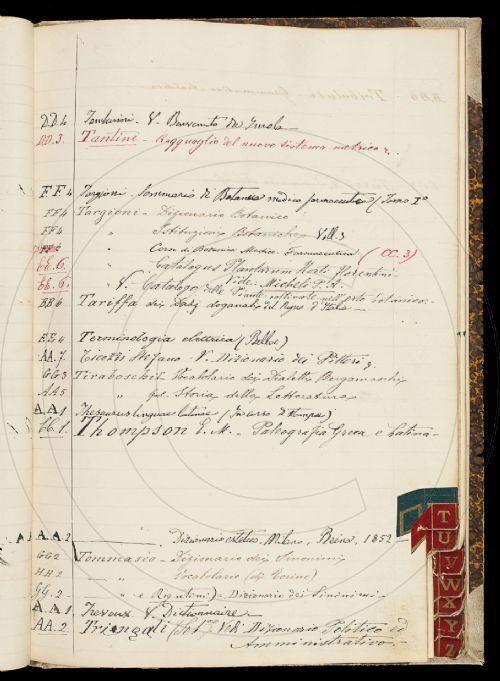 D.D.4 Tamburini - V. Benvenuto da Imola
DD.3. Tantini - Ragguaglio del nuovo sistema metrico
FF4 Targioni - Sommario di Botanica medico farmaceutica (Tomo I°
FF4 Targioni - Dizionario Botanico
FF4 " Istituzioni Botaniche Voll 3
" Corso di Botanica Medico-Farmaceutica (CC.3)
EE.6. " Catalogus Plantarum Horti Florentini
Vide. Micheli P. A.
EE.6. " V. Catalogo delle Piante coltivate nell'orto botanico
BB6 Tariffa dei Dazj doganali del Regno d'Italia
EE4 Terminologia elettrica (Belloc)
AA.7. Ticozzi Stefano V. Dizionario dei Pittori
GG3 Tiraboschi - Vocabolario dei Dialetti Bergamaschi
AA5 " Storia della Letteratura
A.A1 Thesaurus linguae latinae (In corso di stampa)
CC.1. Thompson E. M. - Paleografia Greca e Latina
A.A.2 Dizionario estetico, Milano, Reina, 1852
GG2 Tommaseo - Dizionario dei Sinonimi
HH2 " Vocabolario (di Torino)
GG.2 " e Rigutini) - Dizionario dei Sinonimi
A.A1. Trevoux V. Dictionnaire
AA.2. Tringali Vedi Dizionario Politico ed
Amministrativo.
T
U
V
W
X
Y
Z